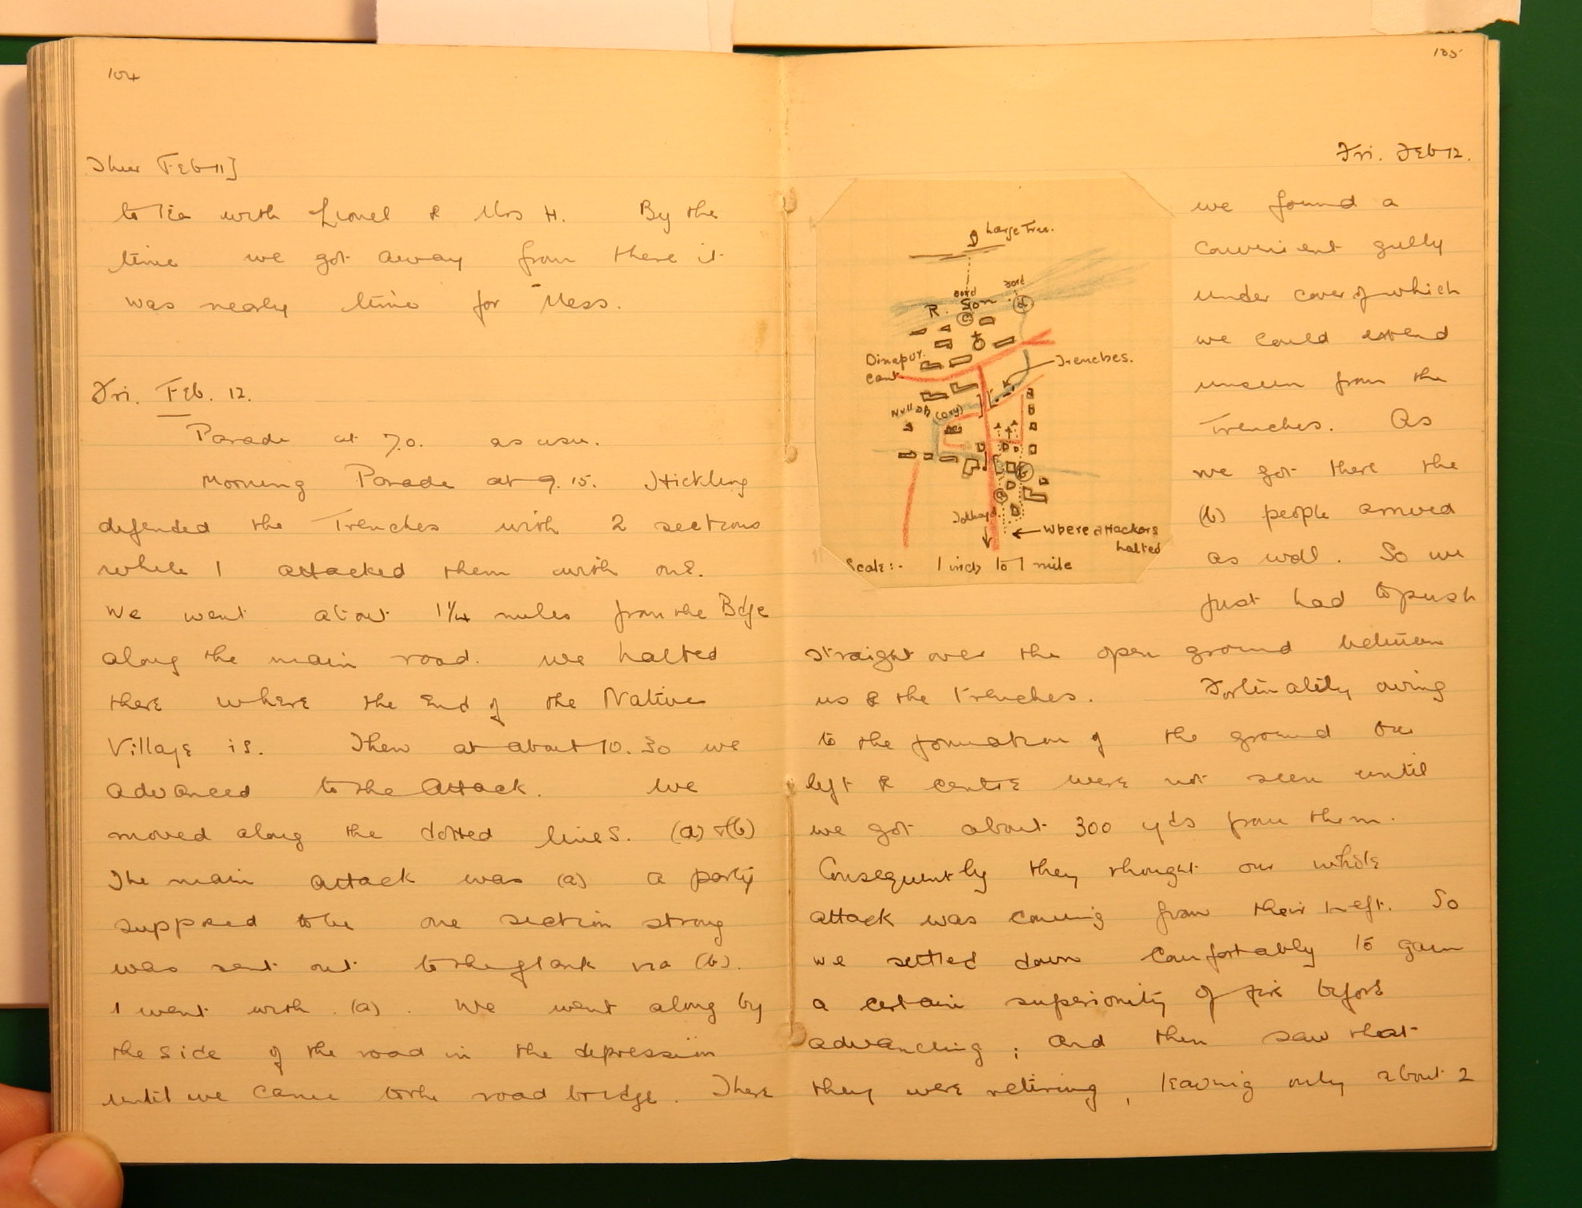 104
Thur Feb 11]
to tea with Lionel & Mrs H. By the
time we got away from there it
was nearly time for Mess.
Fri. Feb. 12.
Parade at 7.0. as usu.
Morning Parade at 9.15. Hickling
defended the Trenches with 2 sections
while I attacked them with one.
We went about 1¼ miles from the Bdge
along the main road. We halted
there where the End of the Native
Village is. Then at about 10.30 we
advanced to the Attack. We
moved along the dotted lines. (a) & (b)
The main attack was (a) a party
supposed to be one section strong
was sent out to the flank via (b).
I went with (a). We went along by
the side of the road in the depression
until we came to the road bridge. There
135
Fri. Feb 12.
Large Tree.
R. Son
Dinapur
Cant
Trenches.
Nullah (dry)
(b)
(a)
Where attackers
halted
Scale:- 1 inch to 1 mile
we found a
convenient gully
under cover of which
we could extend
unseen from the
Trenches. As
we got there the
(b) people arrived
as well. So we
just had to push
straight over the open ground between
us & the trenches. Fortunately owing
to the formation of the ground our
left & centre were not seen until
we got about 300 yds from them.
Consequently they thought our whole
attack was coming from their Left. So
we settled down comfortably to gain
a certain superiority of fire before
advancing; and then saw that
they were retiring, leaving only about 2